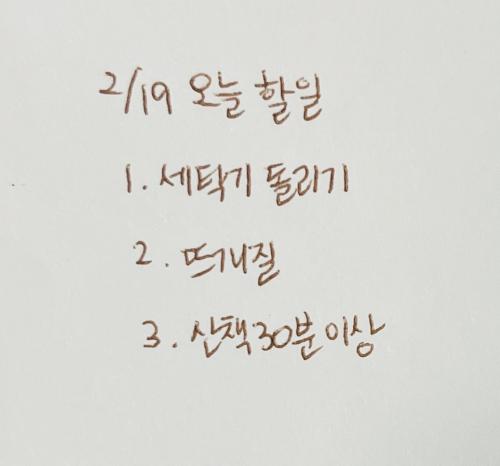 2/19 오늘 할일
1. 세탁기 돌리기
2. 뜨개질
3. 산책30분이상